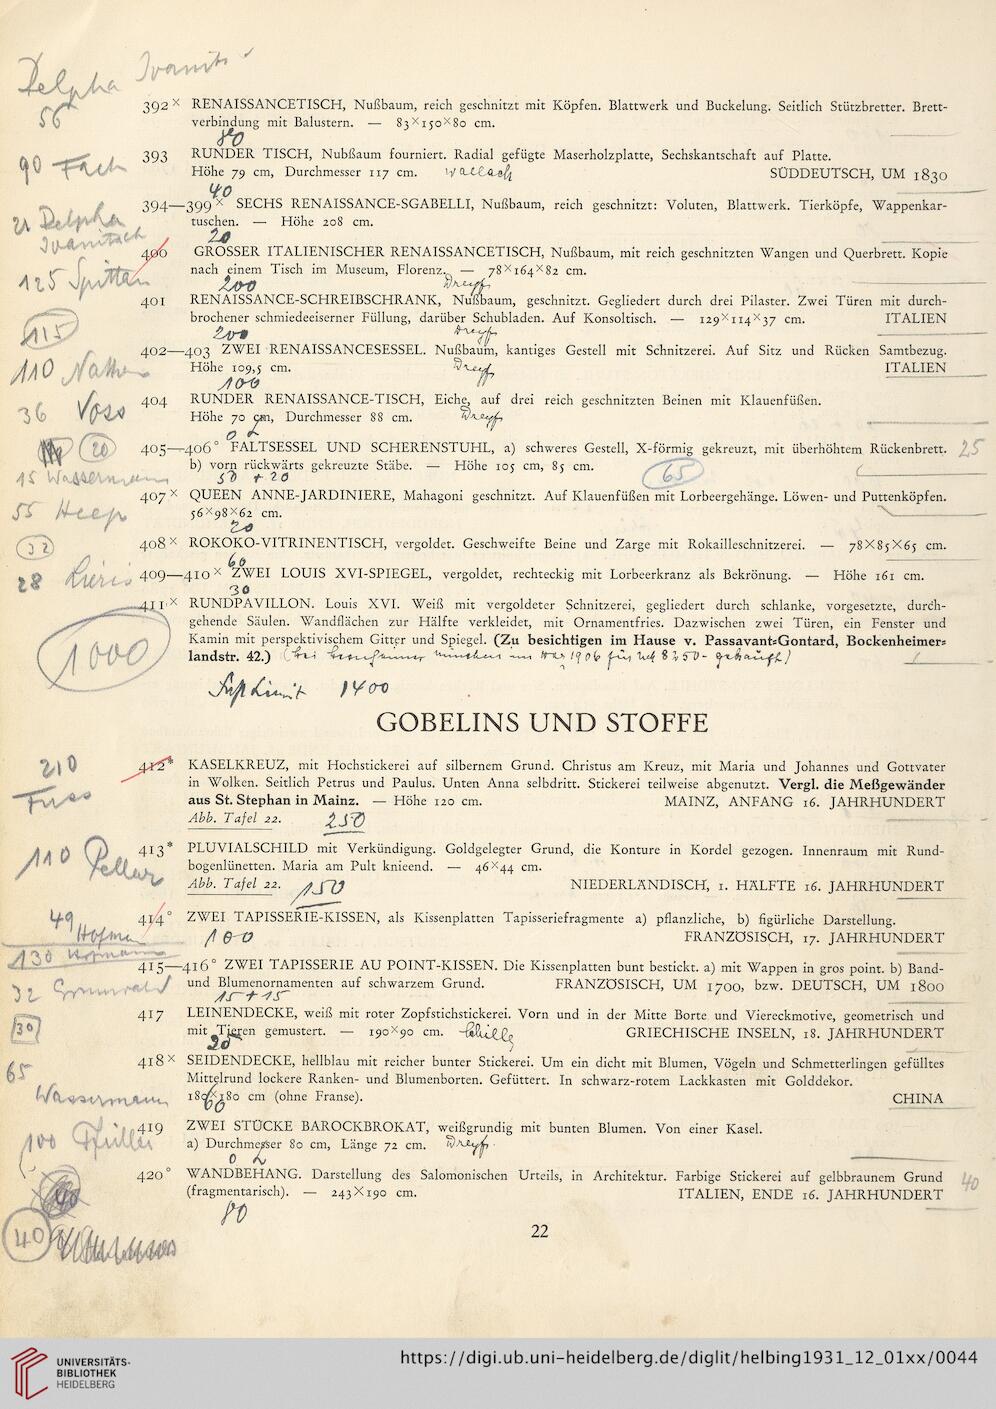 Delpha Ivanits
56
392× RENAISSANCETISCH, Nußbaum, reich geschnitzt mit Köpfen. Blattwerk und Buckelung. Seitlich Stützbretter. Brett-
verbindung mit Balustern. — 83×150×80 cm.
80
90 Fach
393 RUNDER TISCH, Nubßaum fourniert. Radial gefügte Maserholzplatte, Sechskantschaft auf Platte.
Höhe 79 cm, Durchmesser 117 cm. Wallach SÜDDEUTSCH, UM 1830
40
21 Delpha
Ivanitsch
394—399× SECHS RENAISSANCE-SGABELLI, Nußbaum, reich geschnitzt: Voluten, Blattwerk. Tierköpfe, Wappenkar-
tuschen. — Höhe 208 cm.
20
400 GROSSER ITALIENISCHER RENAISSANCETISCH, Nußbaum, mit reich geschnitzten Wangen und Querbrett. Kopie
nach einem Tisch im Museum, Florenz. — 78×164×82 cm.
125
200 Dreyf
401 RENAISSANCE-SCHREIBSCHRANK, Nußbaum, geschnitzt. Gegliedert durch drei Pilaster. Zwei Türen mit durch-
brochener schmiedeeiserner Füllung, darüber Schubladen. Auf Konsoltisch. — 129×114×37 cm. ITALIEN
115
200 Dreyf
402—403 ZWEI RENAISSANCESESSEL. Nußbaum, kantiges Gestell mit Schnitzerei. Auf Sitz und Rücken Samtbezug.
Höhe 109,5 cm. Dreyf ITALIEN
110
100
36 Voss
404 RUNDER RENAISSANCE-TISCH, Eiche, auf drei reich geschnitzten Beinen mit Klauenfüßen.
Höhe 70 cm, Durchmesser 88 cm. Dreyf
20
405—406° FALTSESSEL UND SCHERENSTUHL, a) schweres Gestell, X-förmig gekreuzt, mit überhöhtem Rückenbrett. 25
b) vorn rückwärts gekreuzte Stäbe. — Höhe 105 cm, 85 cm. 65
15 Wassermann
50 + 20
407× QUEEN ANNE-JARDINIERE, Mahagoni geschnitzt. Auf Klauenfüßen mit Lorbeergehänge. Löwen- und Puttenköpfen.
56×98×62 cm.
55
20
32
408× ROKOKO-VITRINENTISCH, vergoldet. Geschweifte Beine und Zarge mit Rokailleschnitzerei. — 78×85×65 cm.
60
28
409—410× ZWEI LOUIS XVI-SPIEGEL, vergoldet, rechteckig mit Lorbeerkranz als Bekrönung. — Höhe 161 cm.
30
411× RUNDPAVILLON. Louis XVI. Weiß mit vergoldeter Schnitzerei, gegliedert durch schlanke, vorgesetzte, durch-
gehende Säulen. Wandflächen zur Hälfte verkleidet, mit Ornamentfries. Dazwischen zwei Türen, ein Fenster und
Kamin mit perspektivischem Gitter und Spiegel. (Zu besichtigen im Hause v. Passavant-Gontard, Bockenheimer-
landstr. 42.)
1000
1400
GOBELINS UND STOFFE
210
Fuss
412* KASELKREUZ, mit Hochstickerei auf silbernem Grund. Christus am Kreuz, mit Maria und Johannes und Gottvater
in Wolken. Seitlich Petrus und Paulus. Unten Anna selbdritt. Stickerei teilweise abgenutzt. Vergl. die Meßgewänder
aus St. Stephan in Mainz. — Höhe 120 cm. MAINZ, ANFANG 16. JAHRHUNDERT
Abb. Tafel 22. 250
110
413* PLUVIALSCHILD mit Verkündigung. Goldgelegter Grund, die Konture in Kordel gezogen. Innenraum mit Rund-
bogenlünetten. Maria am Pult knieend. — 46×44 cm.
Abb. Tafel 22. 150 NIEDERLÄNDISCH, 1. HÄLFTE 16. JAHRHUNDERT
49
414° ZWEI TAPISSERIE-KISSEN, als Kissenplatten Tapisseriefragmente a) pflanzliche, b) figürliche Darstellung.
100 FRANZÖSISCH, 17. JAHRHUNDERT
130
415—416° ZWEI TAPISSERIE AU POINT-KISSEN. Die Kissenplatten bunt bestickt. a) mit Wappen in gros point. b) Band-
und Blumenornamenten auf schwarzem Grund. FRANZÖSISCH, UM 1700, bzw. DEUTSCH, UM 1800
32 Grunwald
15 + 15
30
417 LEINENDECKE, weiß mit roter Zopfstichstickerei. Vorn und in der Mitte Borte und Viereckmotive, geometrisch und
mit Tieren gemustert. — 190×90 cm. GRIECHISCHE INSELN, 18. JAHRHUNDERT
20
65
Wassermann
418× SEIDENDECKE, hellblau mit reicher bunter Stickerei. Um ein dicht mit Blumen, Vögeln und Schmetterlingen gefülltes
Mittelrund lockere Ranken- und Blumenborten. Gefüttert. In schwarz-rotem Lackkasten mit Golddekor.
180×180 cm (ohne Franse). CHINA
60
100
419 ZWEI STÜCKE BAROCKBROKAT, weißgrundig mit bunten Blumen. Von einer Kasel.
a) Durchmesser 80 cm, Länge 72 cm. Dreyf
420° WANDBEHANG. Darstellung des Salomonischen Urteils, in Architektur. Farbige Stickerei auf gelbbraunem Grund 40
(fragmentarisch). — 243×190 cm. ITALIEN, ENDE 16. JAHRHUNDERT
80
40
22
UNIVERSITÄTS-
BIBLIOTHEK
HEIDELBERG
https://digi.ub.uni-heidelberg.de/diglit/helbing1931_12_01xx/0044